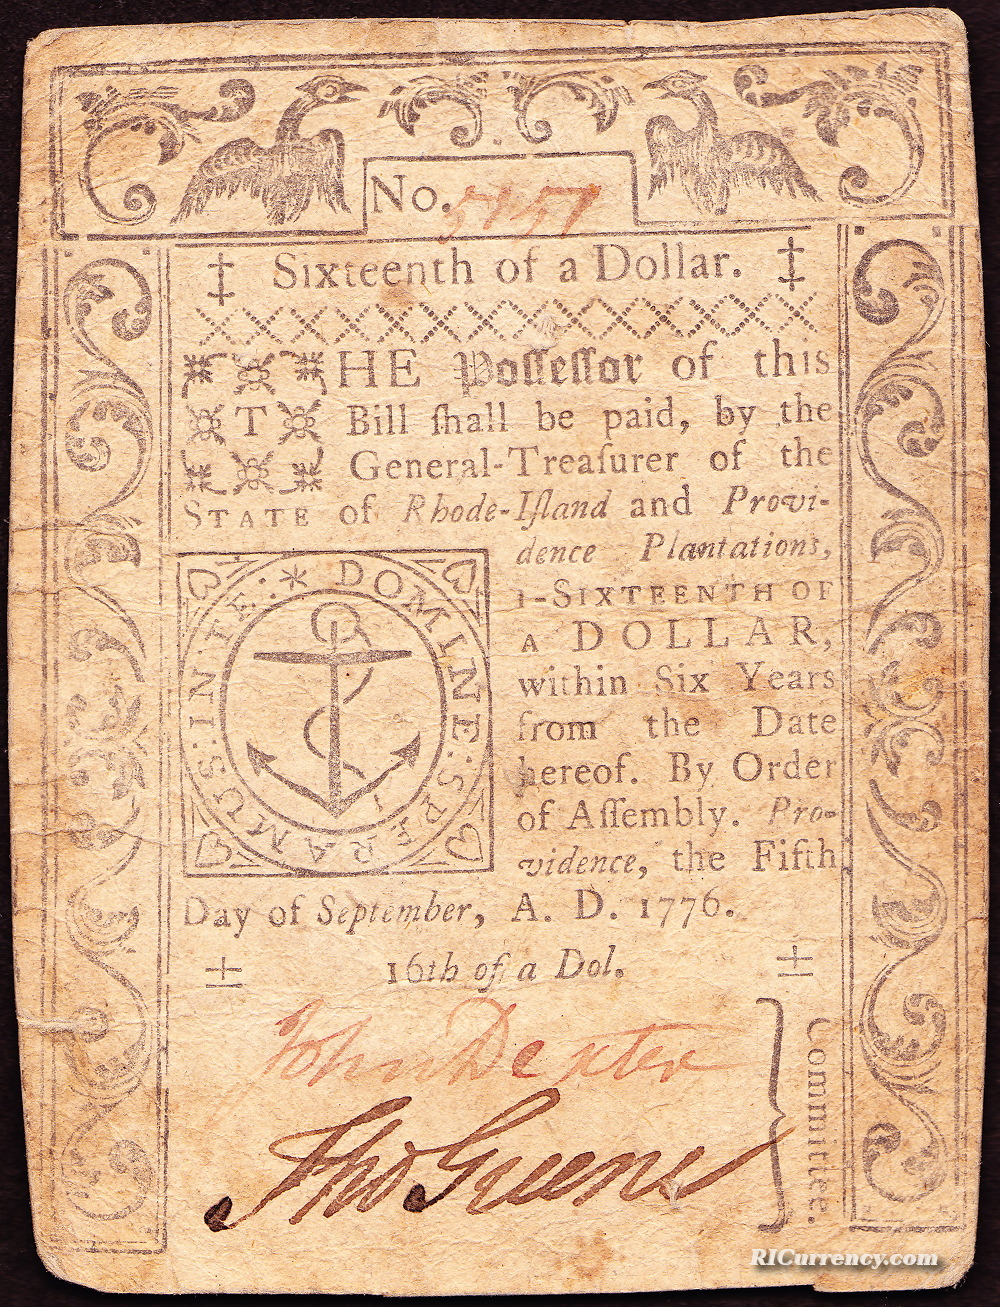 No. 5151
Sixteenth of a Dollar.
THE Poſſeſſor of this
Bill ſhall be paid, by the
General-Treaſurer of the
STATE of Rhode-Iſland and Provi-
dence Plantations,
1-SIXTEENTH OF
A DOLLAR,
within Six Years
from the Date
hereof. By Order
of Aſſembly. Pro-
vidence, the Fifth
Day of September, A. D. 1776.
DOMINE : SPERAMUS : IN : TE :
16th of a Dol.
John Dexter
Tho Greene
Committee.
RICurrency.com